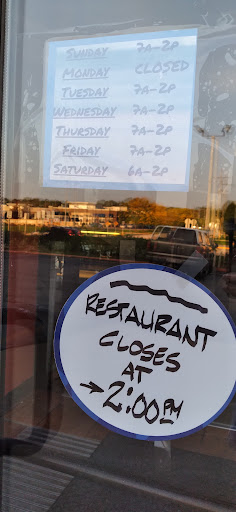 Sunday 7a-2p
Monday CLOSED
Tuesday 7a-2p
Wednesday 7a-2p
Thursday 7a-2p
Friday 7a-2p
Saturday 6a-2p
RESTAURANT
CLOSES
AT
→2:00PM